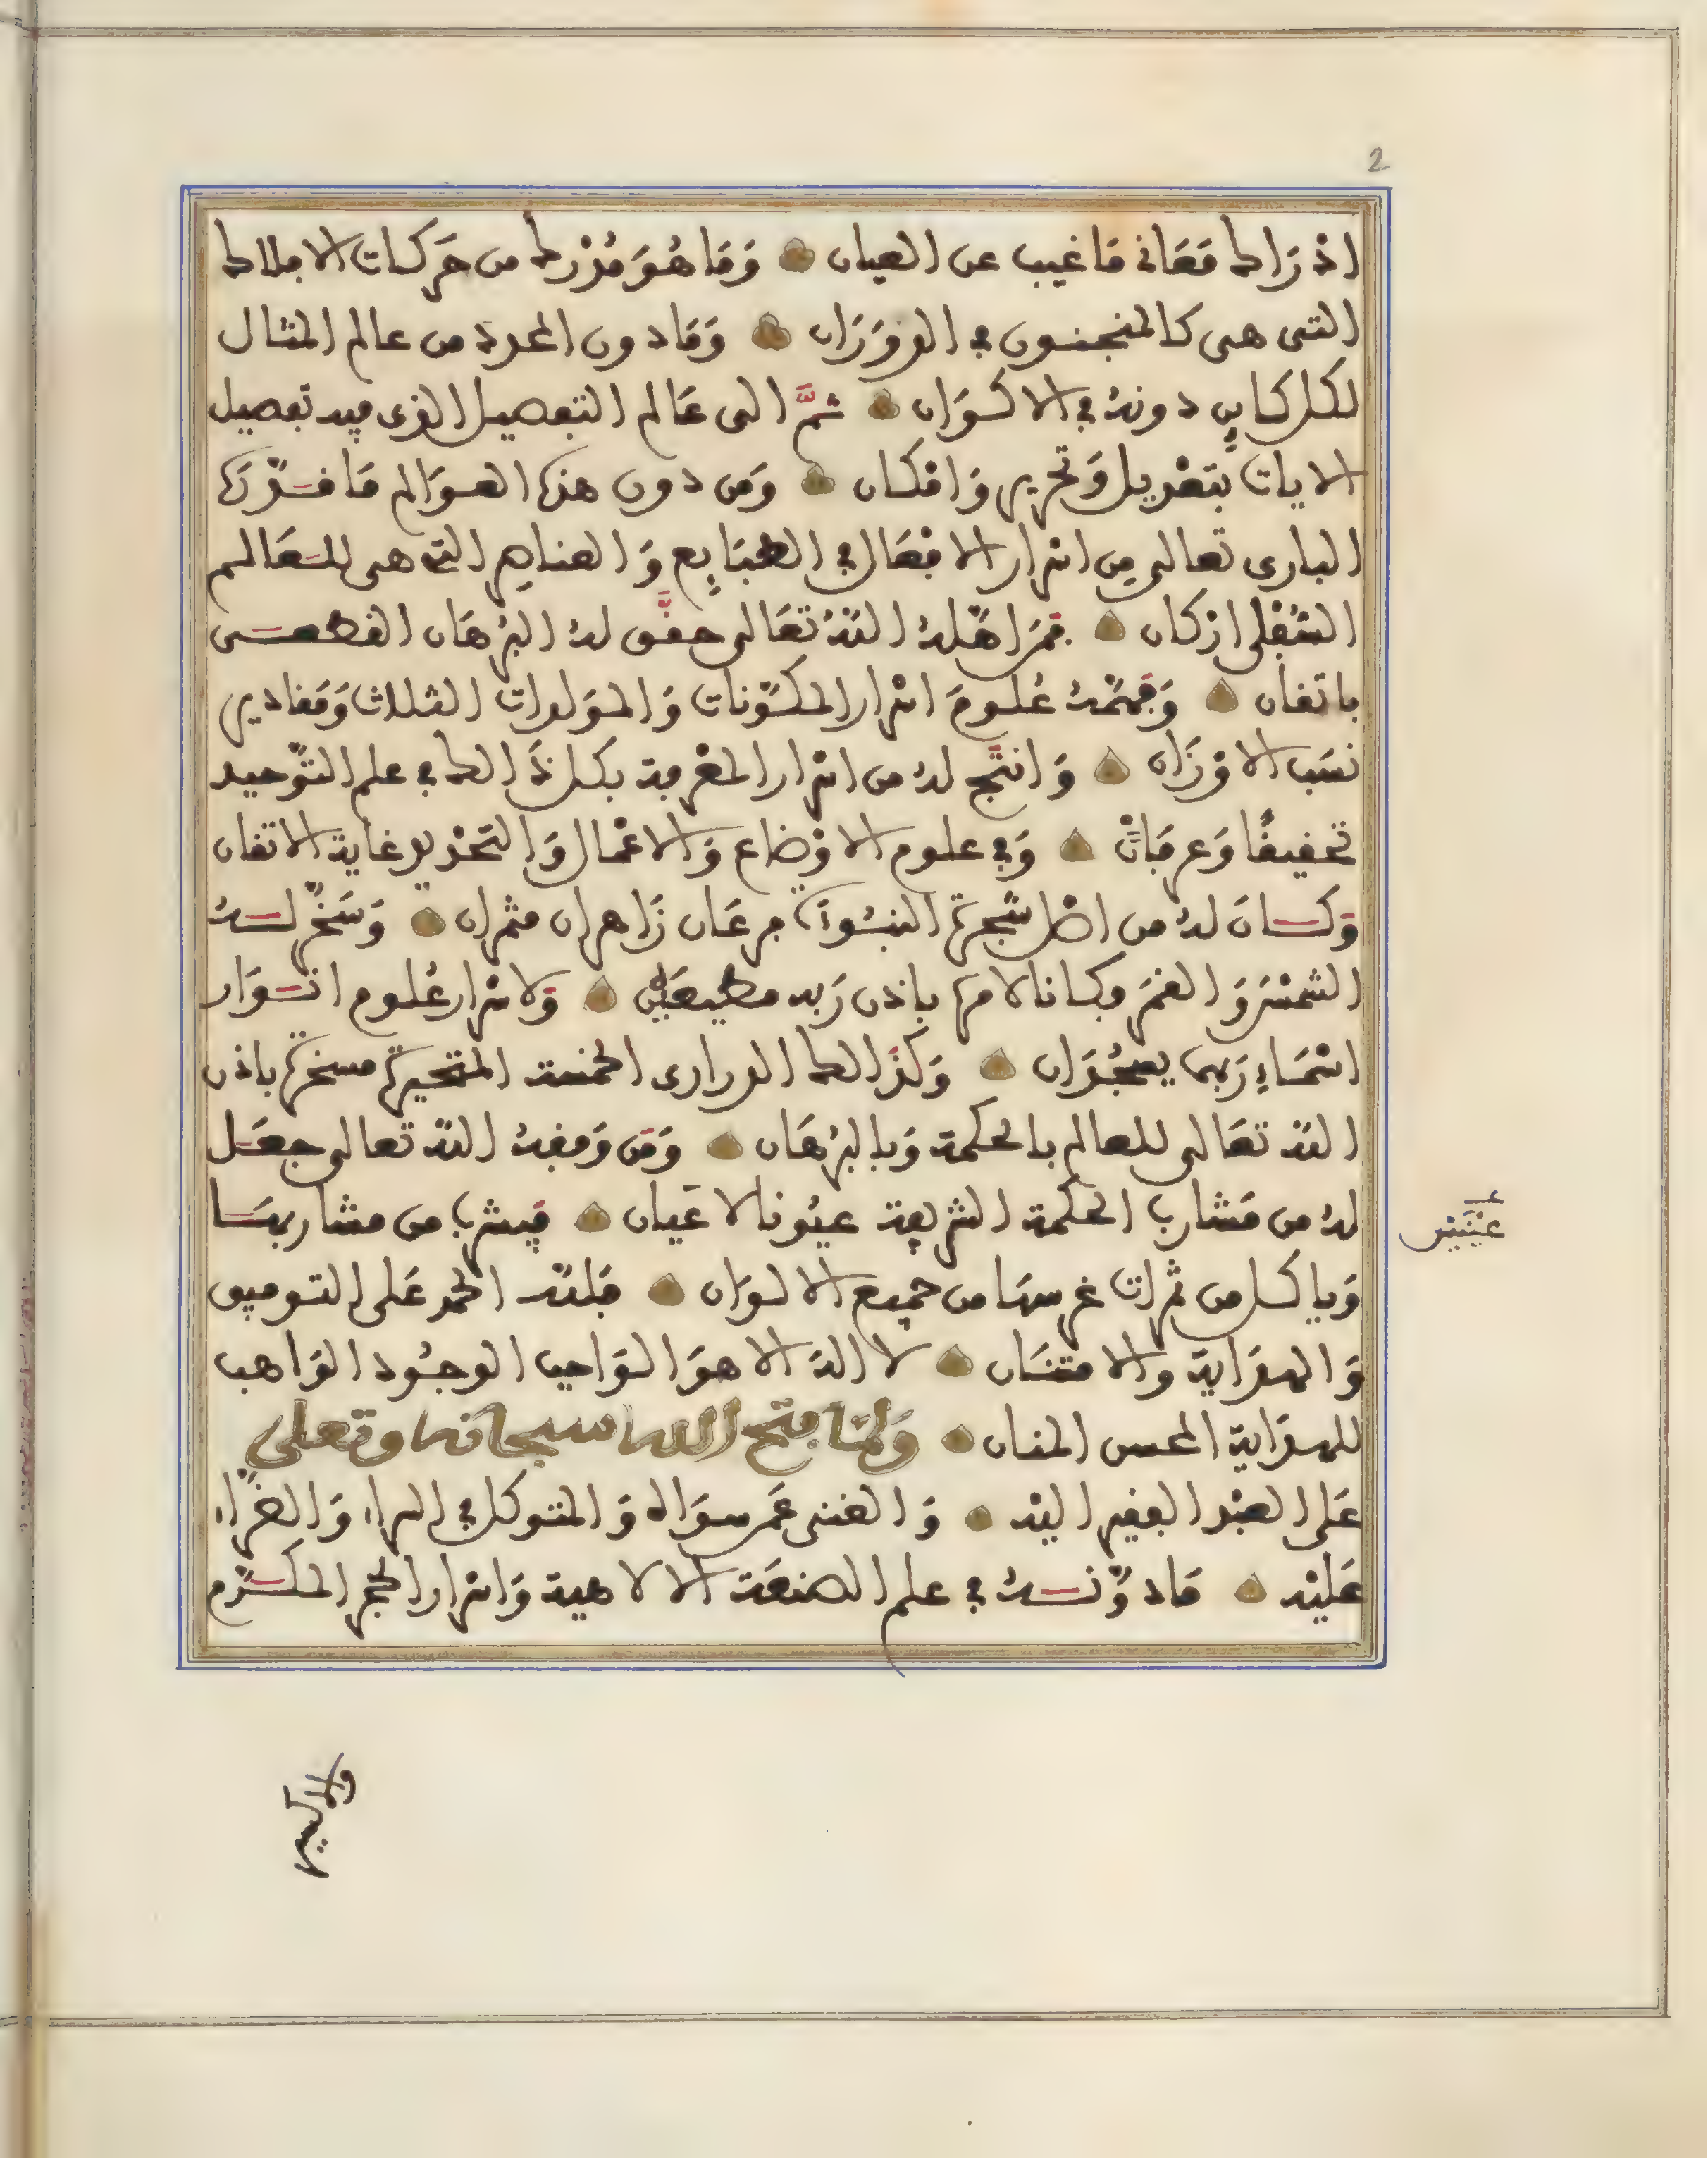 2
ادْرَاك مَعَانى مَا غيب عن العيان وَمَا هُوَ مُدْرك من حَركات الافلاك
التى هى كالمنجنون فى الدوَرَان وَمَا دون المحدد من عالم المثال
لكل كاين دونه فى الاكوَان ثمَّ الى عَالم التفصيل الذى فيه تفصيل
الايات بتعْديل وَتحرير وَامْكان وَمن دون هذه العوَالم مَا قدّره
البارى تعالى مِن اسْرار الافْعَال فى الطبَايِع وَالعناصِر التى هى للعَالم
السُّفْلى ارْكان فمَن اهّله اللّه تعَالى حقَّق له البُرْهَان القطعى
باتقان وَفهّمَهُ عُلومَ اسْرار المكوّنات وَالموَلدات الثلاث وَمَقادير
نسَب الاوْزَان وَانتَج لهُ من اسْرار المعْرفة بكل ذَالك فى علم التوْحيد
تحقيقًا وَعرفَانًا وَفى علوم الاوْضاع وَالاعْمال وَالتحْديد غاية الاتقان
وَكان لهُ من اصْل شجرة النبُوءَة فرعَان زَاهران مثمران وَسَخّر له
الشمْسَ وَالقمَر فكانا لامره باذن رَبه مطيعَيْن وَلاسْرار عُلوم انوَار
اسْمَاءِ رَبهما يسْجُدَان وَكذَالك الدرارى الخمسة المتحيرة مسخرة باذن
اللّه تعَالى للعالم بالحكمة وَبالبُرْهَان وَمَن وَفقهُ اللّه تعالى جعَل
لهُ من مَشارب الحكمة الشريفة عيُونا لاعَيان فيشرب من مشاربهَا
وَياكل من ثمرات غرسهَا من جميع الالوَان فللّه الحمد عَلى التوفيق
وَالهدَاية والامتنَان لا الهَ الا هوَ الوَاجب الوجُود الوَاهب
للهدَاية المحسن المنان وَلمّا فتح الله سبحانه وتعلى
عَلى العبْد الفقير اليْه وَالغنى عَمن سوَاه وَالمتوكل فى السراء وَالضرّاء
عَليْه مَا دوَّنه فى علم الصنعَة الالاهية وَاسْرار الحجر المكرّم
عيْنَيْن
والاكسير